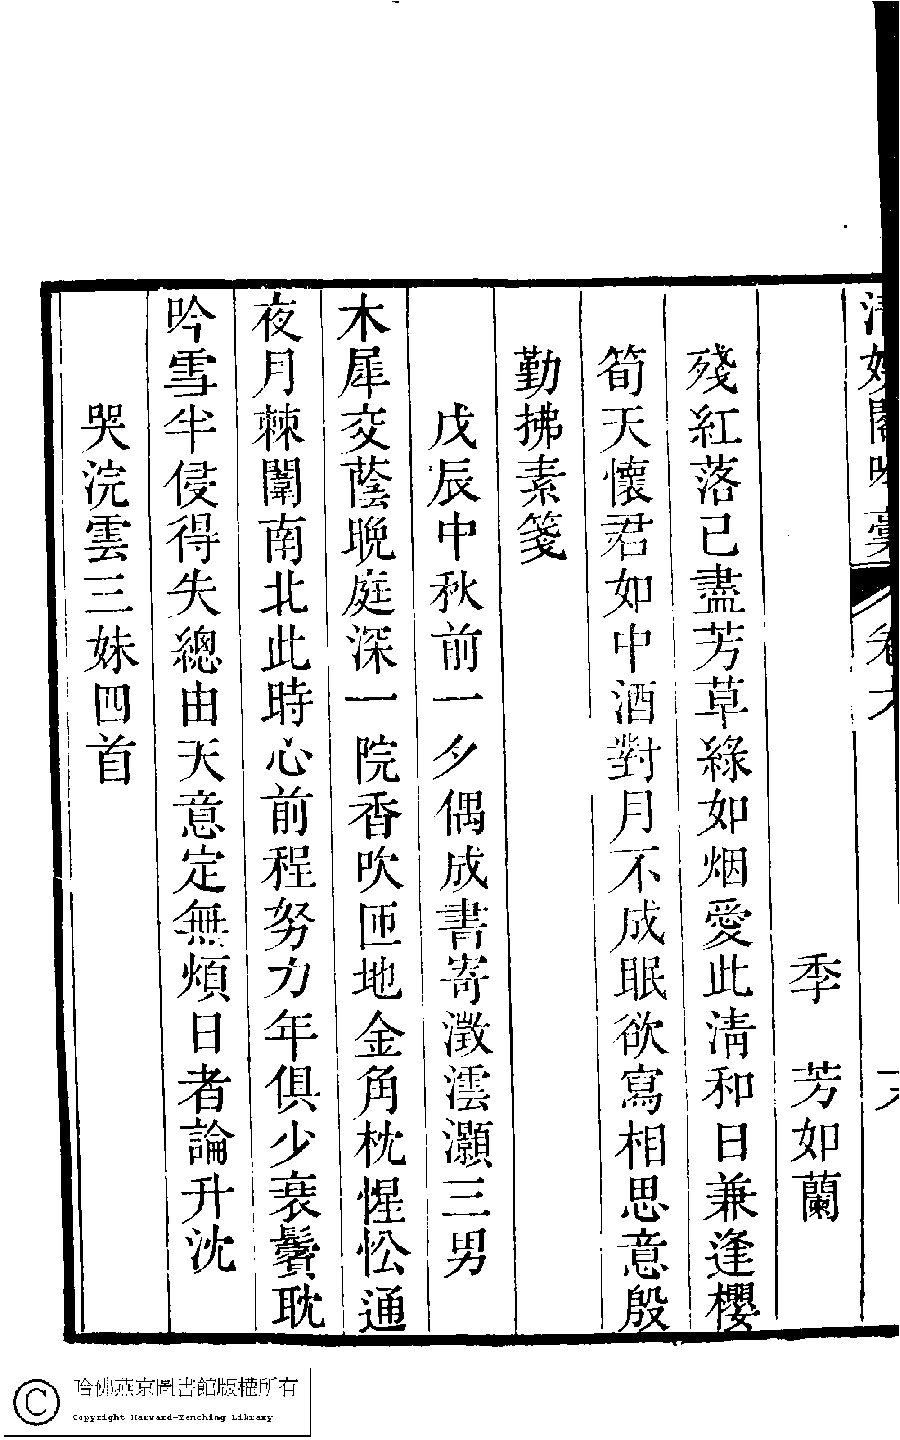 清娛閣吟藁 卷六
季 芳如蘭
殘紅落已盡芳草綠如烟愛此淸和日兼逢櫻
筍天懷君如中酒對月不成眠欲寫相思意殷
勤拂素箋
戊辰中秋前一夕偶成書寄澂澐灝三男
木犀交蔭晚庭深一院香吹匝地金角枕惺忪通
夜月棘闈南北此時心前程努力年俱少衰鬢耽
吟雪半侵得失總由天意定無煩日者論升沈
哭浣雲三妹四首
哈佛燕京圖書館版權所有
Copyright Harvard-Yenching Library